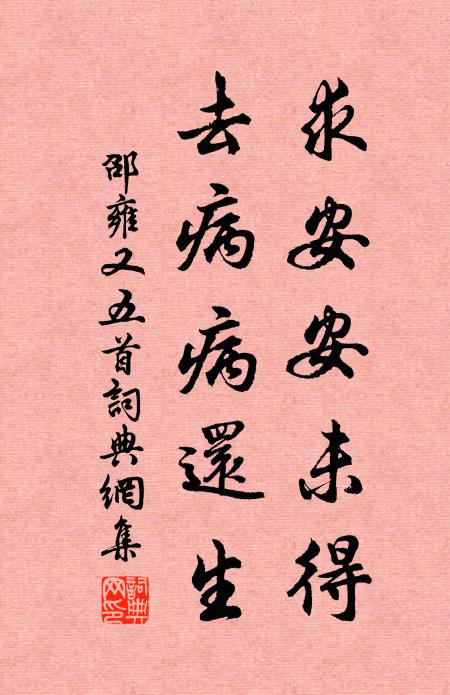 求安安未得
去病病還生
邵雍又五首詞典網集
詞典網印